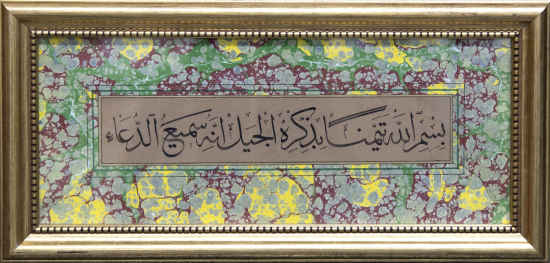 بِسْمِ اللّٰهِ تَيَمُّنًا بِذِكْرِهِ الْجَمِيلِ اِنَّهُ سَمِيعُ الدُّعَاءِ